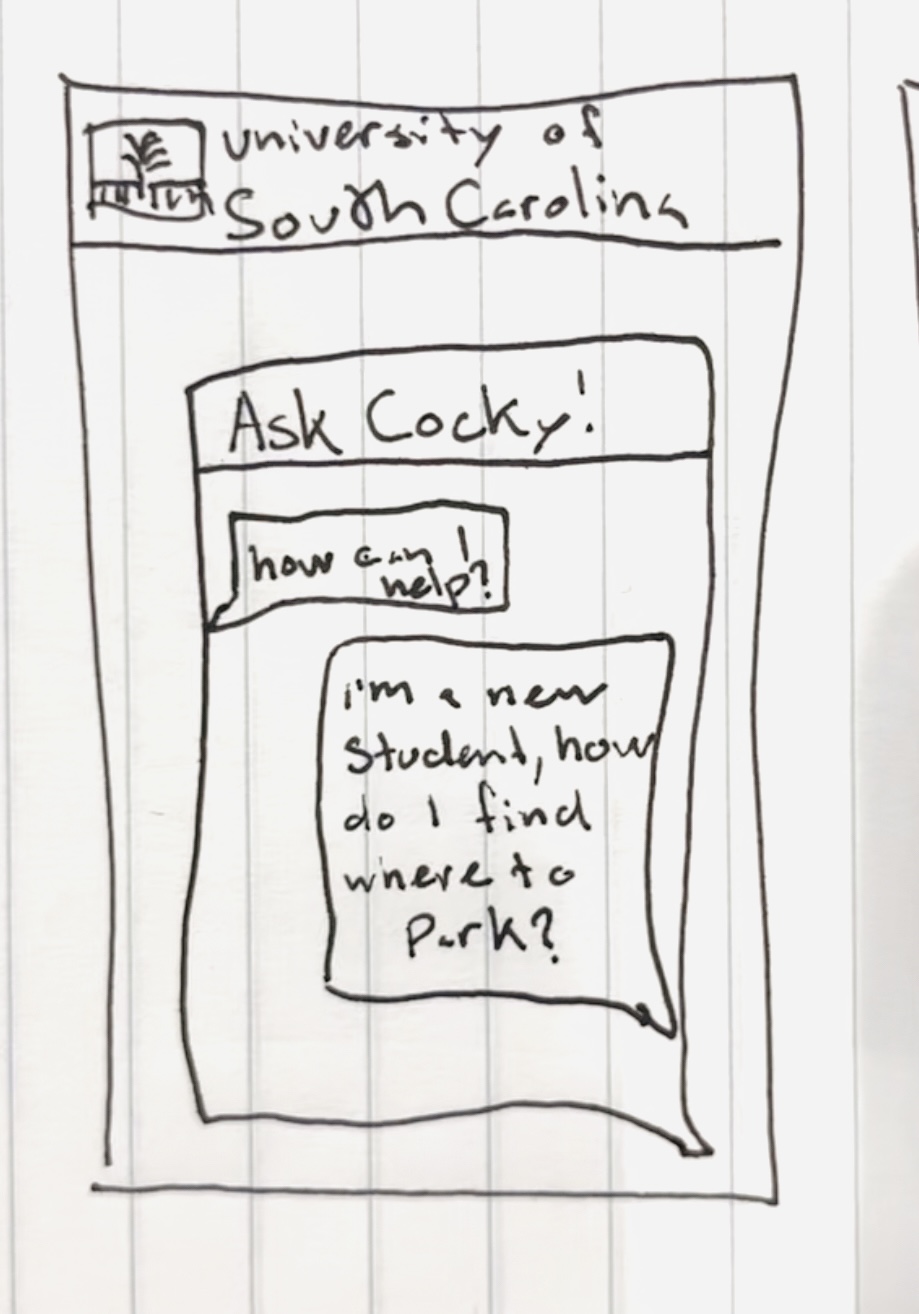 university of
South Carolina
Ask Cocky!
how can I
help?
i'm a new
student, how
do I find
where to
park?